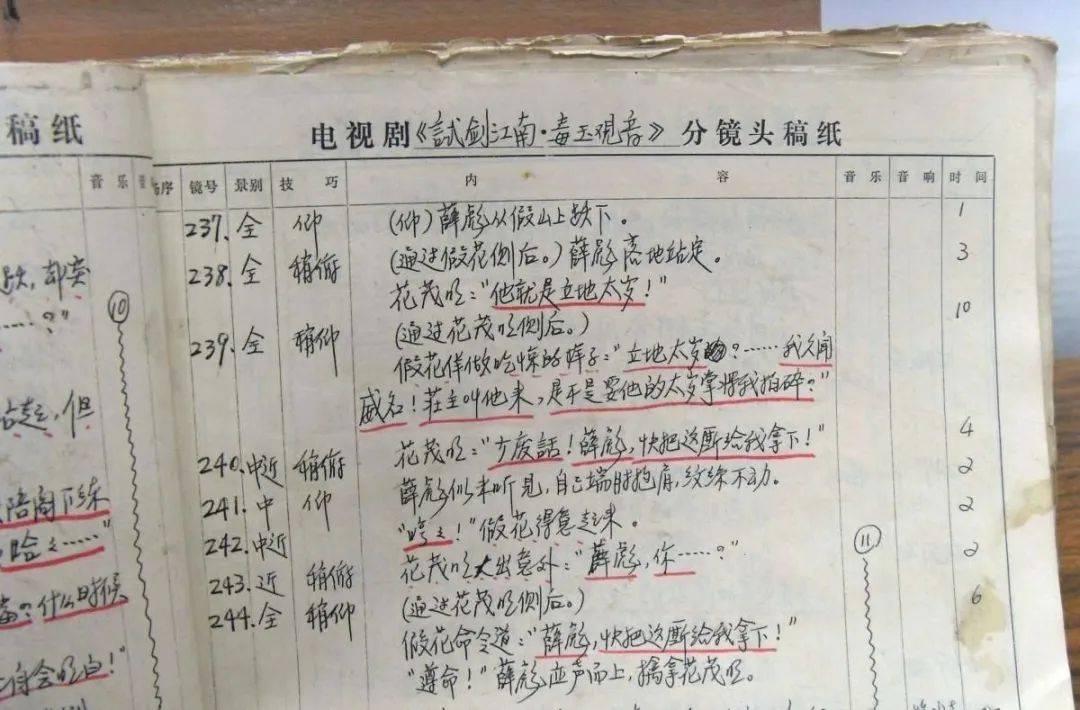 稿纸
音乐
却实
……?"
⑩
但
陪阁下练
哈哈……"
什么时候
会明白!"
电视剧《試剑江南·毒玉观音》分镜头稿纸
序 镜号 景别 技巧 内容 音乐 音响 时间
237. 全 仰 (仰)薛彪从假山上跃下。 1
238. 全 稍俯 (通过假花侧后。)薛彪落地站定。 3
花茂明:"他就是立地太岁!"
239. 全 稍仰 (通过花茂明侧后。) 10
假花佯做吃惊的样子:"立地太岁?……我久闻
威名!莊主叫他来,是不是要他的太岁掌将我拍碎?"
240. 中近 稍俯 花茂明:"少废話!薛彪,快把这厮给我拿下!" 4
241. 中 仰 薛彪似未听见,自己端肘抱肩,纹絲不动。 2
242. 中近 "哈哈!"假花得意起来。 2
243. 近 稍俯 花茂明大出意外:"薛彪,你……?" 2
244. 全 稍仰 (通过花茂明侧后。) 6
假花命令道:"薛彪,快把这厮给我拿下!"
"遵命!"薛彪应声而上,擒拿花茂明。
⑪